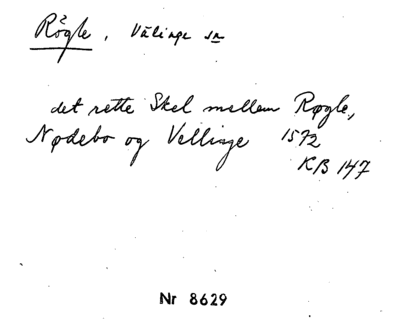 Rögle, Välinge sn
det rette Skel mellem Røgle,
Nødebo og Vellinge 1572
KB 147
Nr 8629